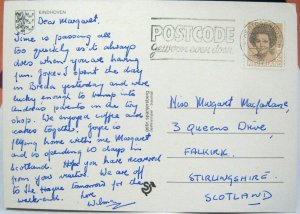 EINDHOVEN
Dear Margaret,
Time is passing all
too quickly as it always
does when you are having
fun. Joyce & I spent the day
in Breda yesterday and were
lucky enough to bump into
Andrea's parents in the toy
shop. We enjoyed coffee and
cakes together. Joyce is
flying home with me Margaret
and is spending 10 days in
Scotland. Hope you have recovered
from your visitor. We are off
to The Hague tomorrow for the
weekend. Love
Wilma
POSTCODE
gewoon even doen
Miss Margaret Macfarlane,
3 Queens Drive,
FALKIRK.
STIRLINGSHIRE.
SCOTLAND